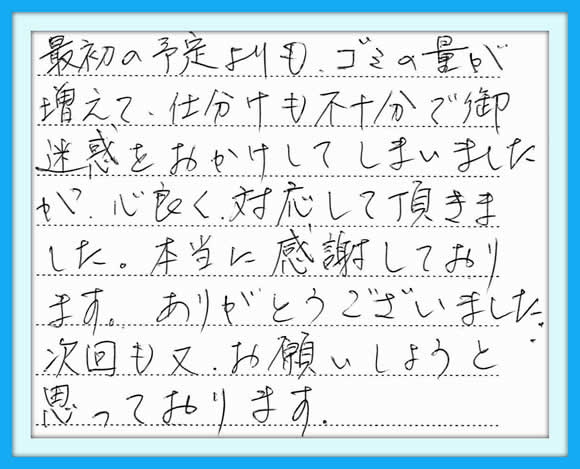 最初の予定よりも、ゴミの量が
増えて、仕分けも不十分で御
迷惑をおかけしてしまいました
が、心良く、対応して頂きま
した。本当に感謝しており
ます。ありがとうございました。
次回も又、お願いしようと
思っております。